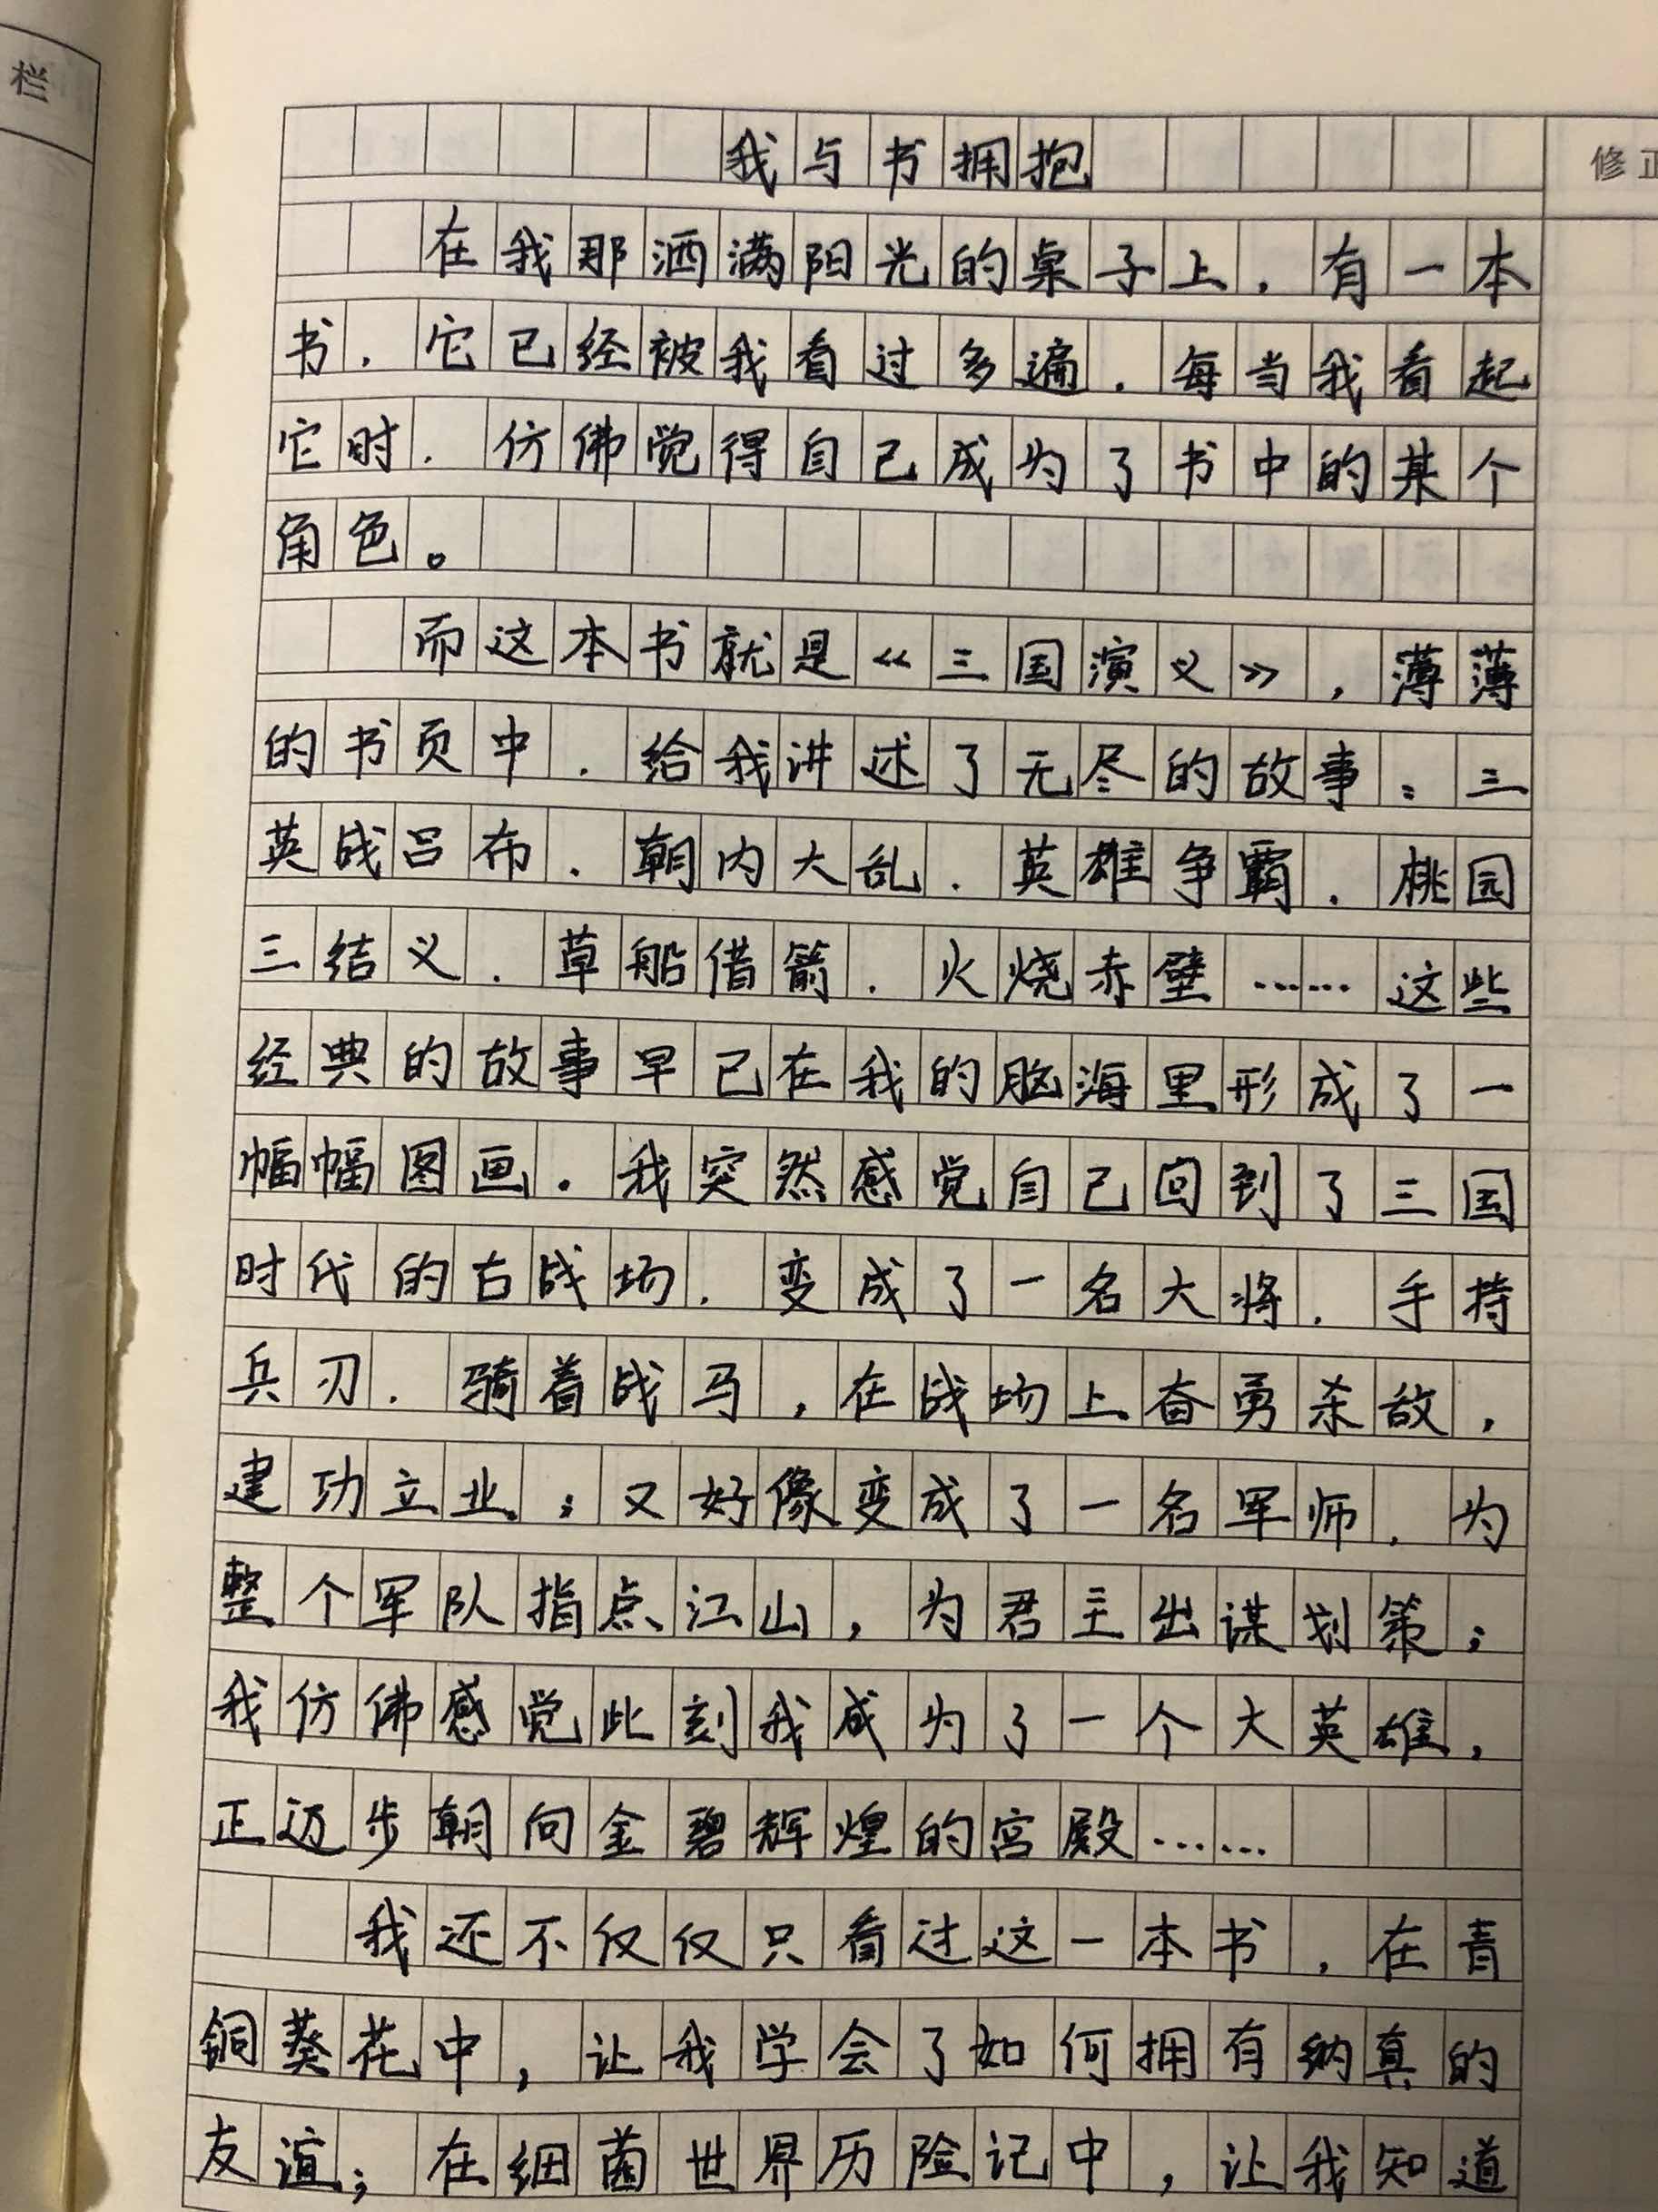 栏
修正
我与书拥抱
在我那洒满阳光的桌子上，有一本
书，它已经被我看过多遍，每当我看起
它时，仿佛觉得自己成为了书中的某个
角色。
而这本书就是《三国演义》，薄薄
的书页中，给我讲述了无尽的故事：三
英战吕布，朝内大乱，英雄争霸，桃园
三结义，草船借箭，火烧赤壁……这些
经典的故事早已在我的脑海里形成了一
幅幅图画。我突然感觉自己回到了三国
时代的古战场，变成了一名大将，手持
兵刃，骑着战马，在战场上奋勇杀敌，
建功立业；又好像变成了一名军师，为
整个军队指点江山，为君主出谋划策；
我仿佛感觉此刻我成为了一个大英雄，
正迈步朝向金碧辉煌的宫殿……
我还不仅仅只看过这一本书，在青
铜葵花中，让我学会了如何拥有纳真的
友谊；在细菌世界历险记中，让我知道